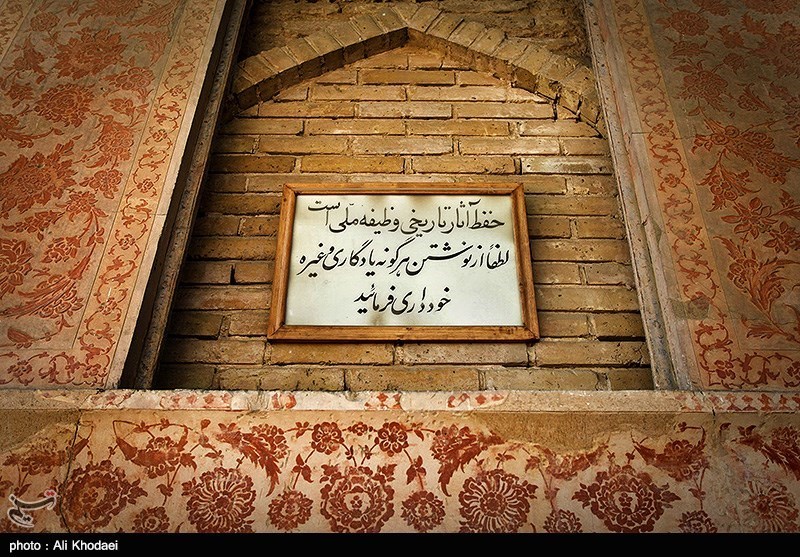 حفظ آثار تاریخی وظیفه ملّی است
لطفاً از نوشتن هرگونه یادگاری و غیره
خودداری فرمائید
photo : Ali Khodaei